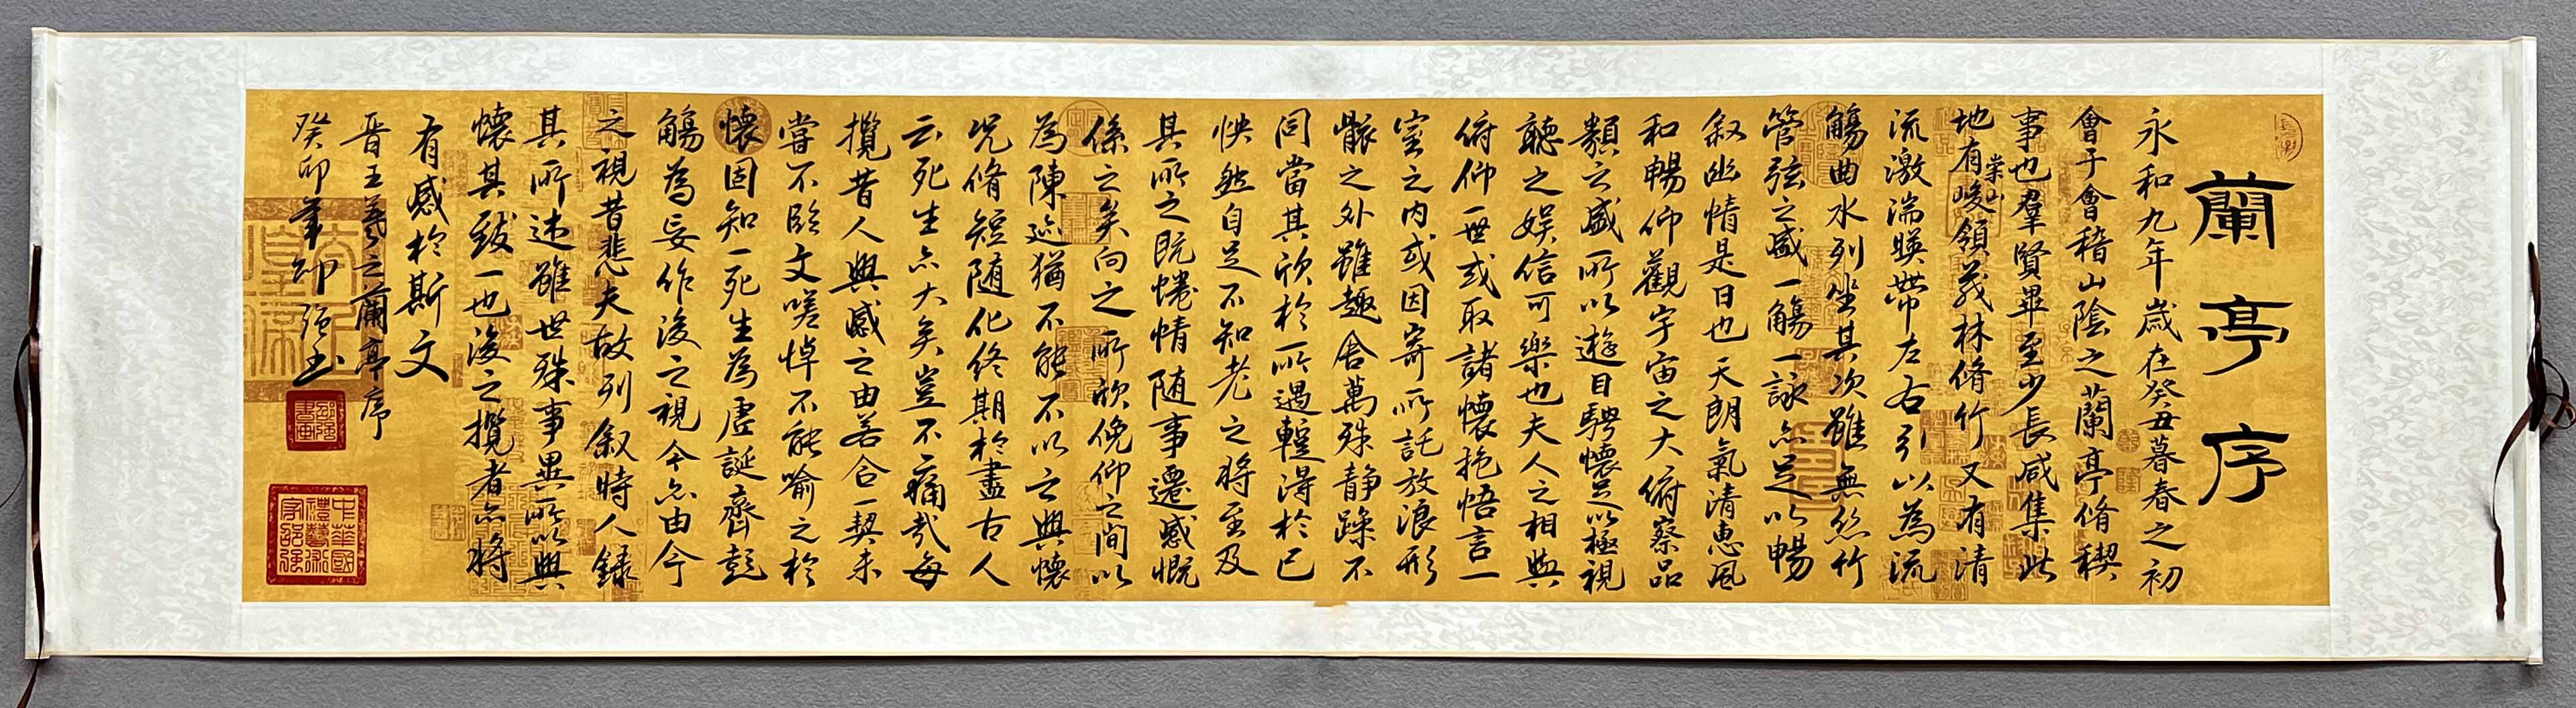 蘭亭序
永和九年歲在癸丑暮春之初
會于會稽山陰之蘭亭脩稧
事也羣賢畢至少長咸集此
地有崇山峻領茂林脩竹又有清
流激湍暎帶左右引以為流
觴曲水列坐其次雖無絲竹
管弦之盛一觴一詠亦足以暢
叙幽情是日也天朗氣清惠風
和暢仰觀宇宙之大俯察品
類之盛所以遊目騁懷足以極視
聽之娛信可樂也夫人之相與
俯仰一世或取諸懷抱悟言一
室之內或因寄所託放浪形
骸之外雖趣舍萬殊静躁不
同當其欣於所遇蹔得於己
怏然自足不知老之將至及
其所之既惓情随事遷感慨
係之矣向之所欣俛仰之間以
為陳迹猶不能不以之興懷
况脩短随化終期於盡古人
云死生亦大矣豈不痛哉每
攬昔人興感之由若合一契未
嘗不臨文嗟悼不能喻之於
懷固知一死生為虛誕齊彭
觴為妄作後之視今亦由今
之視昔悲夫故列叙時人錄
其所述雖世殊事異所以興
懷其致一也後之攬者亦將
有感於斯文
晉王羲之蘭亭序
癸卯年邵強書
邵強書畫
中華國禮藝術家邵強